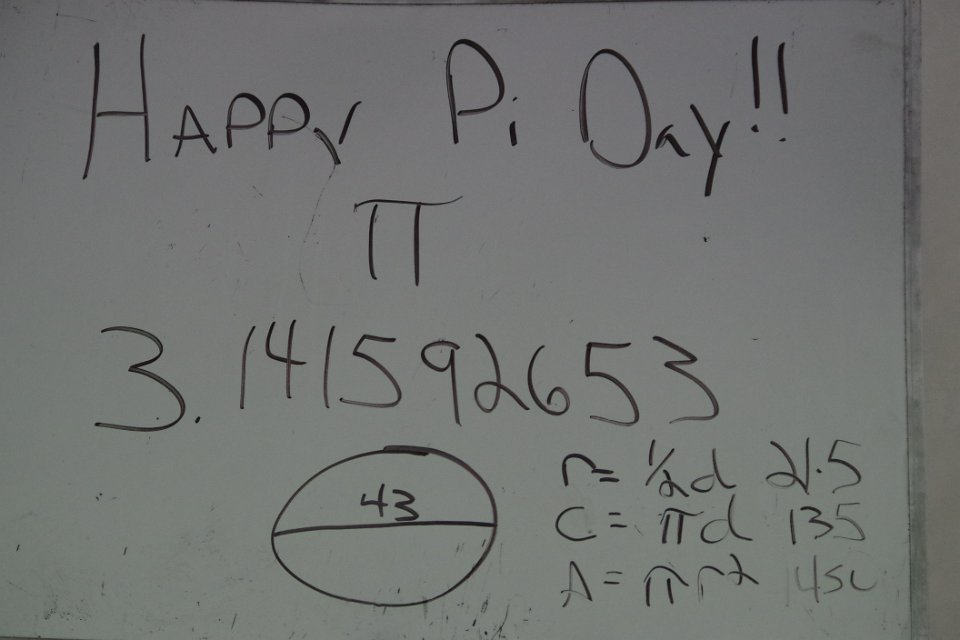 Happy Pi Day!!
π
3.141592653
43
r= 1/2d 21.5
C= πd 135
A= πr2